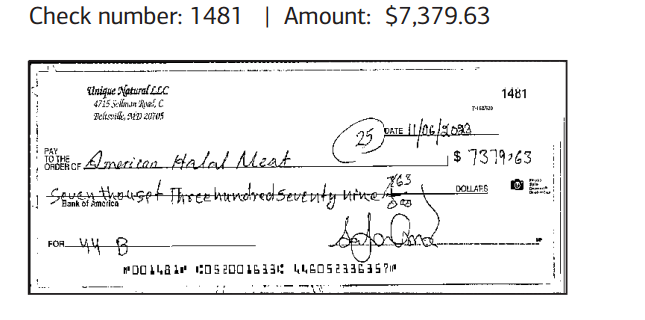 Check number: 1481 | Amount: $7,379.63
Unique Natural LLC
1481
4715 Sellman Road, C
Beltsville, MD 20705
25 DATE 11/06/2023
PAY TO THE ORDER OF American Halal Meat $ 7379.63
Seven thouset Three hundred seventy nine 63 DOLLARS
Bank of America
FOR 44 B
⑈001481⑈ ⑆052001633⑆ 446052336357⑈